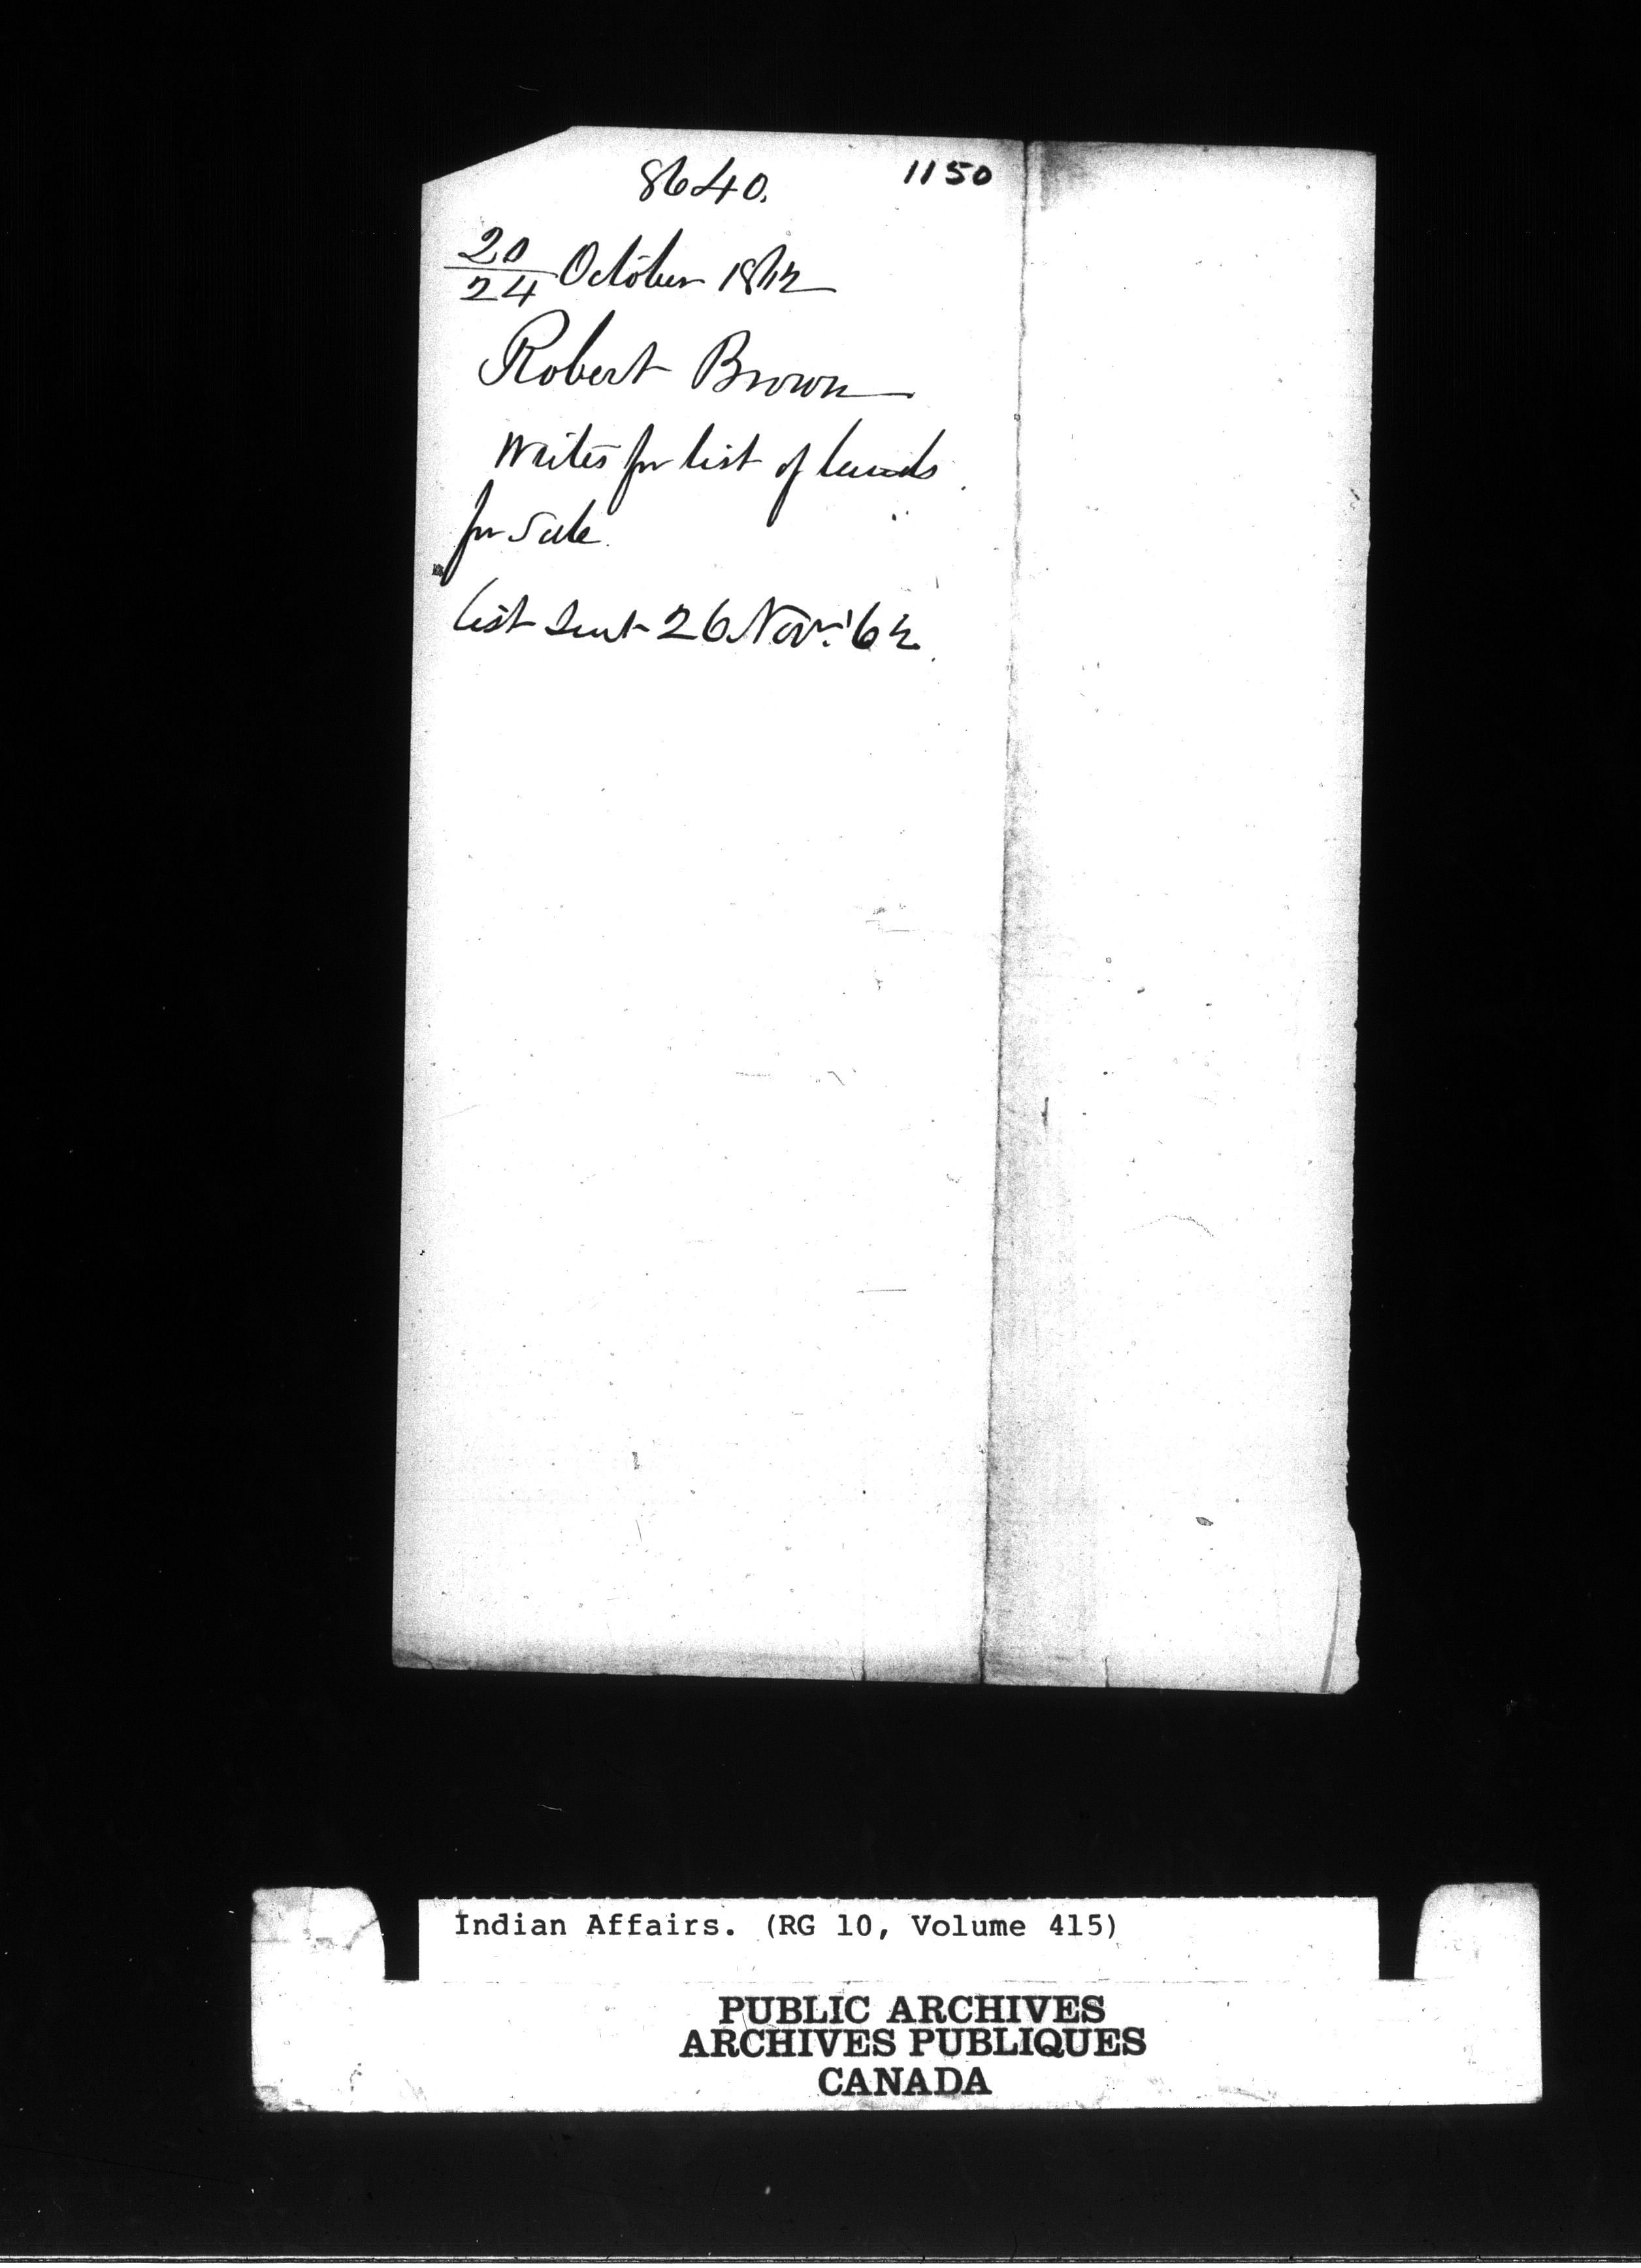 8640. 1150
20/24 October 1862
Robert Brown
Writes for list of lands
for sale.
List sent 26 Novr. '62.
Indian Affairs. (RG 10, Volume 415)
PUBLIC ARCHIVES
ARCHIVES PUBLIQUES
CANADA